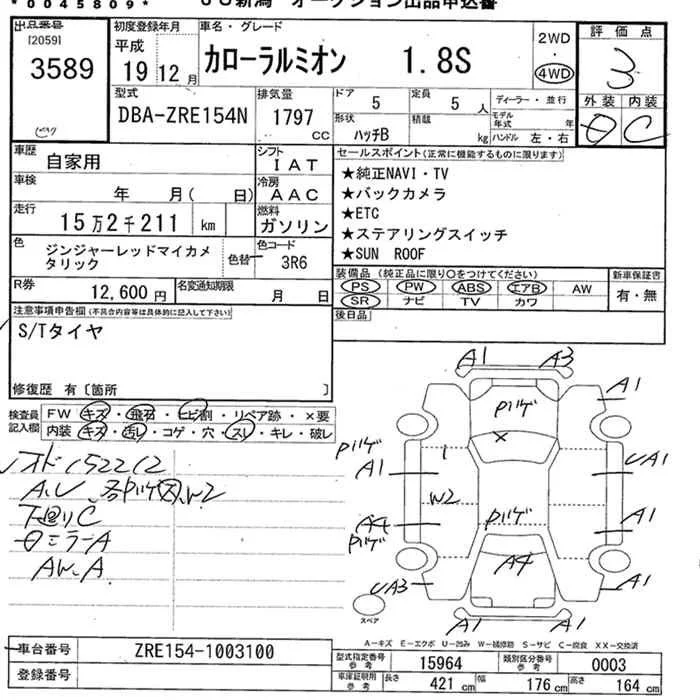 *0045809* JU新潟 オークション出品申込書
出品番号 初度登録年月 車名・グレード 評価点
[2059] 平成 カローラルミオン 1.8S 2WD 4WD 3
3589 19年12月
外装 内装
C
型式 排気量 ドア 5 定員 5人 ディーラー・並行
DBA-ZRE154N 1797cc 形状 ハッチB 積載 kg モデル年式 年 ハンドル 左・右
車歴 自家用 シフト IAT
車検 年 月( 日) 冷房 AAC
走行 15万2千211 km 燃料 ガソリン
色 ジンジャーレッドマイカメタリック 色替 色コード 3R6
R券 12,600円 名変通知期限 月 日
セールスポイント(正常に機能するものに限ります)
★純正NAVI・TV
★バックカメラ
★ETC
★ステアリングスイッチ
★SUN ROOF
装備品(純正品に限り○をつけてください) 新車保証書
PS PW ABS エアB AW 有・無
SR ナビ TV カワ
後日品
注意事項申告欄(不具合内容等は具体的に記入して下さい)
S/Tタイヤ
修復歴 有〔箇所 〕
検査員記入欄 FW キズ・飛石・ヒビ割・リペア跡・×要
内装 キズ・汚し・コゲ・穴・スレ・キレ・破レ
152212
A.U
W2
下回りC
ミラーA
AW.A
A1 A3
A1
Pハゲ
×
Pハゲ
A1
UA1
W2
A4
Pハゲ
Pハゲ
A1
A4
UA3
A1
A1 A1
スペア
A-キズ E-エクボ U-凹み W-補修跡 S-サビ C-腐食 XX-交換済
車台番号 ZRE154-1003100
登録番号
型式指定番号 参考 15964 類別区分番号 参考 0003
車庫証明用 参考 長さ 421cm 幅 176cm 高さ 164cm